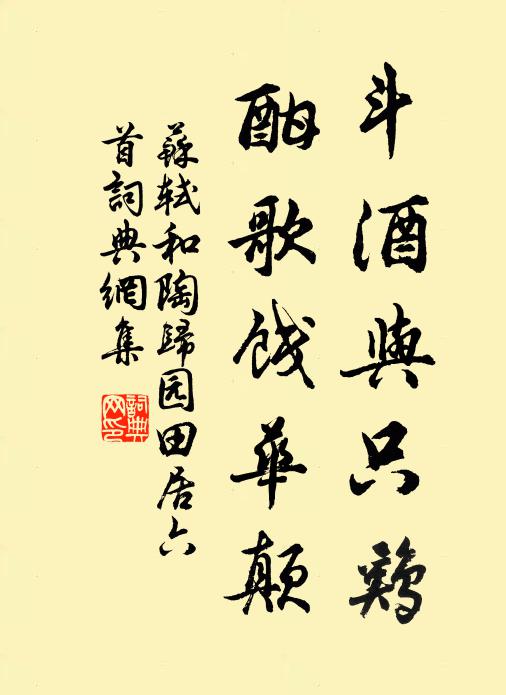 斗酒與只鷄
酣歌餞華顛
蘇軾和陶歸园田居六
首詞典網集
詞典网印